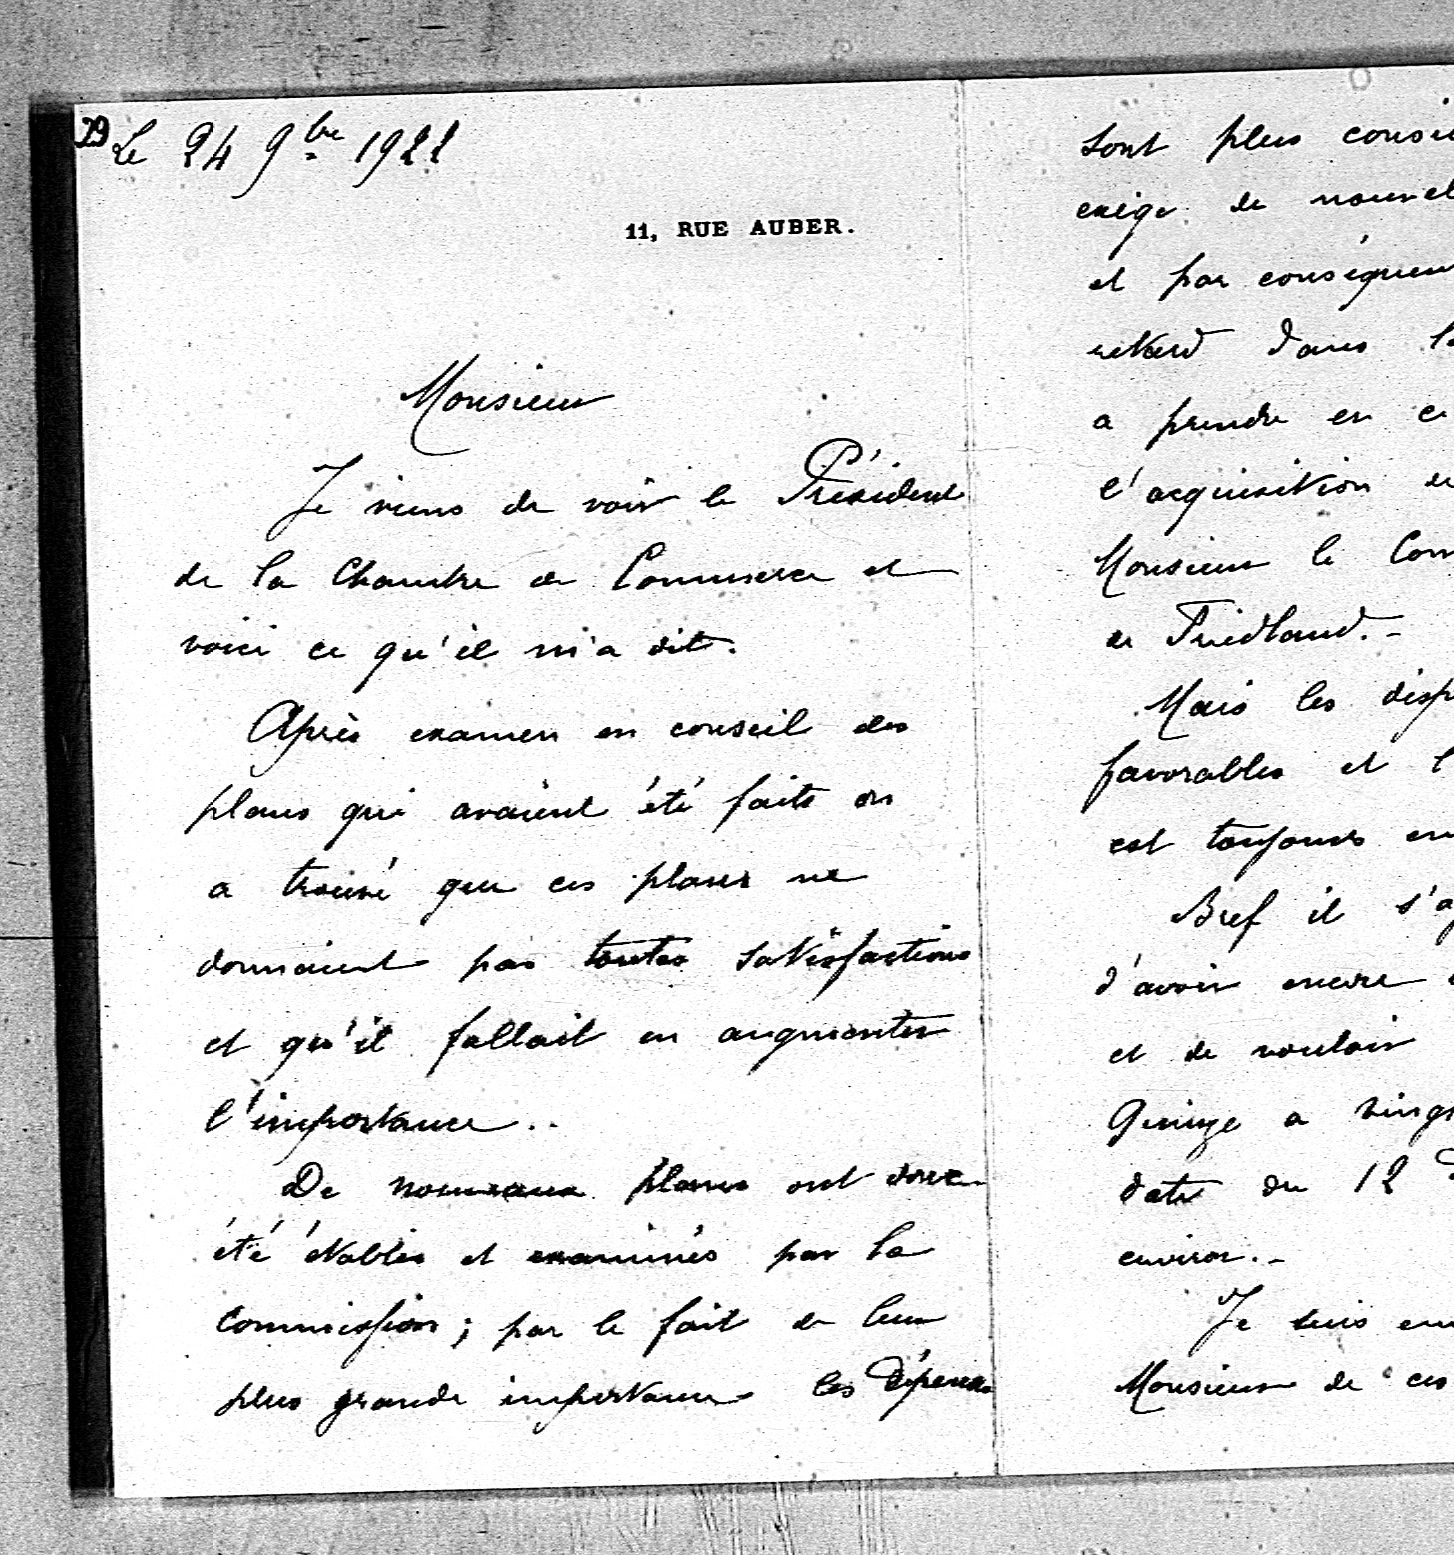 29
Le 24 9bre 1922
11, RUE AUBER.
Monsieur
Je viens de voir le Président
de la Chambre de Commerce et
voici ce qu'il m'a dit.
Après examen en conseil des
plans qui avaient été faits on
a trouvé que ces plans ne
donnaient pas toutes satisfactions
et qu'il fallait en augmenter
l'importance..
De nouveaux plans ont donc
été établis et examinés par la
Commission; par le fait de leur
plus grande importance les dépenses
sont plus
exige de
et par
retard dans
a prendre en
l'acquisition de
Monsieur le
de Friedland.-
Mais les
favorables et
est toujours
Bref il
d'avoir encore
et de vouloir
Quinze a
date du 12
environ.-
Je suis
Monsieur de ces